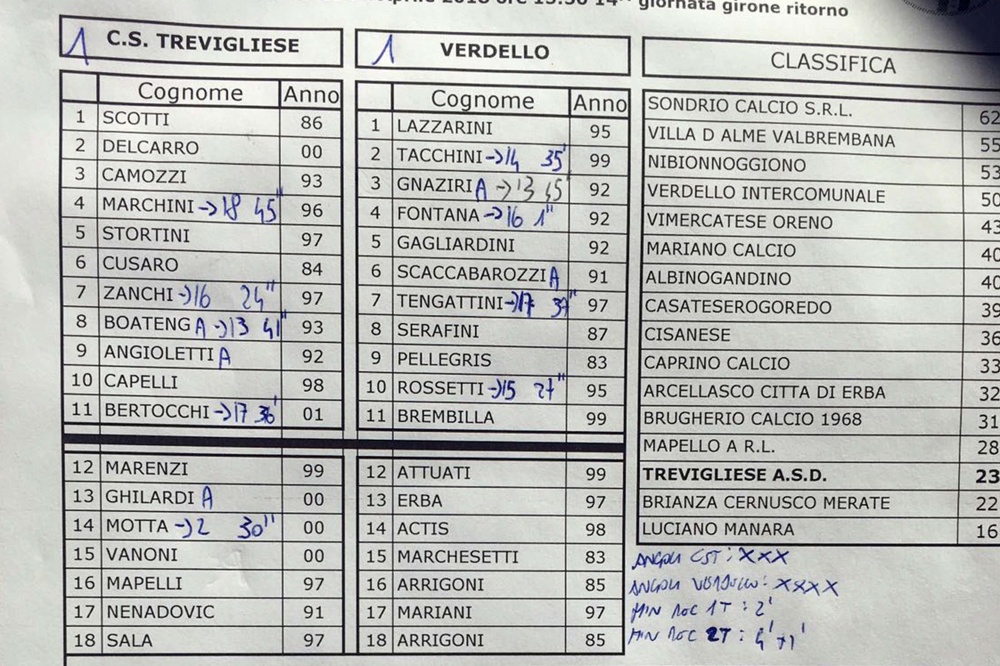 2018 ore 15.30 14^ giornata girone ritorno
1 C.S. TREVIGLIESE
Cognome Anno
1 SCOTTI 86
2 DELCARRO 00
3 CAMOZZI 93
4 MARCHINI →18 45" 96
5 STORTINI 97
6 CUSARO 84
7 ZANCHI →16 24" 97
8 BOATENG A →13 41" 93
9 ANGIOLETTI A 92
10 CAPELLI 98
11 BERTOCCHI →17 36' 01
12 MARENZI 99
13 GHILARDI A 00
14 MOTTA →2 30" 00
15 VANONI 00
16 MAPELLI 97
17 NENADOVIC 91
18 SALA 97
1 VERDELLO
Cognome Anno
1 LAZZARINI 95
2 TACCHINI →14 35' 99
3 GNAZIRI A →13 45' 92
4 FONTANA →16 1" 92
5 GAGLIARDINI 92
6 SCACCABAROZZI A 91
7 TENGATTINI →17 97
8 SERAFINI 87
9 PELLEGRIS 83
10 ROSSETTI →15 27" 95
11 BREMBILLA 99
12 ATTUATI 99
13 ERBA 97
14 ACTIS 98
15 MARCHESETTI 83
16 ARRIGONI 85
17 MARIANI 97
18 ARRIGONI 85
CLASSIFICA
SONDRIO CALCIO S.R.L. 62
VILLA D ALME VALBREMBANA 55
NIBIONNOGGIONO 53
VERDELLO INTERCOMUNALE 50
VIMERCATESE ORENO 43
MARIANO CALCIO 40
ALBINOGANDINO 40
CASATESEROGOREDO 39
CISANESE 36
CAPRINO CALCIO 33
ARCELLASCO CITTA DI ERBA 32
BRUGHERIO CALCIO 1968 31
MAPELLO A R.L. 28
TREVIGLIESE A.S.D. 23
BRIANZA CERNUSCO MERATE 22
LUCIANO MANARA 16
ANGOLI CST: XXX
ANGOLI VERDELLO: XXXX
MIN REC 1T: 2'
MIN REC 2T: 4'+1'